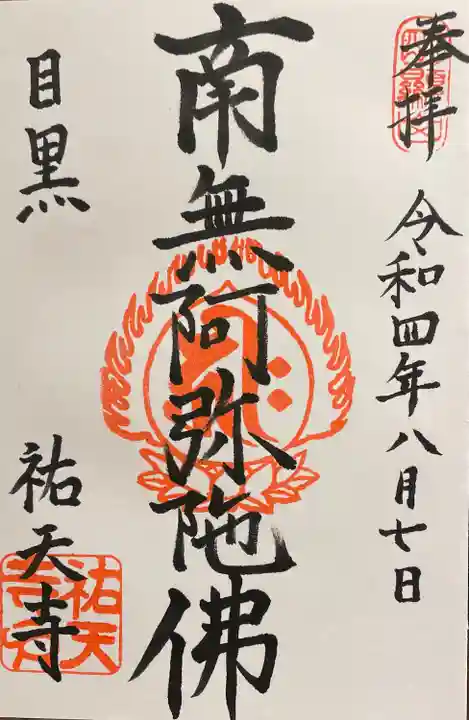 奉拝
令和四年八月七日
南無阿弥陀佛
目黒
祐天寺
祐天